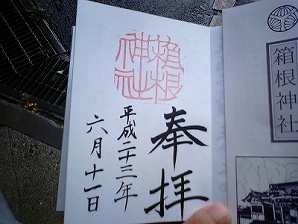 奉拝
箱根神社
平成二十三年
六月十一日
箱根神社